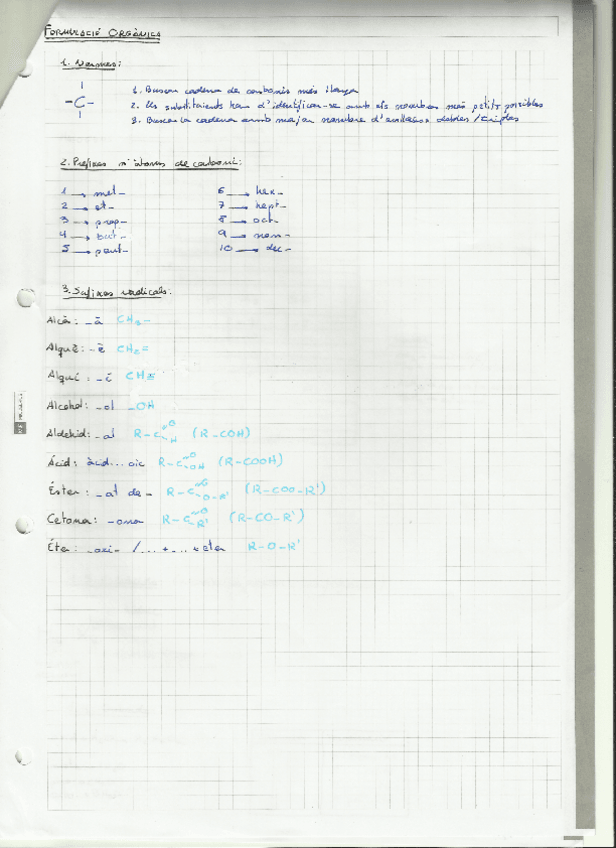 FORMULACIÓ ORGÀNICA
1. Normes:
-C-
1. Buscar cadena de carbonis més llarga
2. Els substituients han d'identificar-se amb els nombres més petits possibles
3. Buscar la cadena amb major nombre d'enllaços dobles / triples
2. Prefixes nº àtoms de carboni:
1 → met-
2 → et-
3 → prop-
4 → but-
5 → pent-
6 → hex-
7 → hept-
8 → oct-
9 → non-
10 → dec-
3. Sufixes radicals:
Alcà: -à CH3-
Alquè: -è CH2=
Alquí: -í CH≡
Alcohol: -ol -OH
Aldehid: -al R-C=O H (R-COH)
Àcid: àcid... oic R-C=O OH (R-COOH)
Éster: -at de - R-C=O O-R' (R-COO-R')
Cetona: -ona R-C=O R' (R-CO-R')
Éter: -oxi- /... + ... + èter R-O-R'